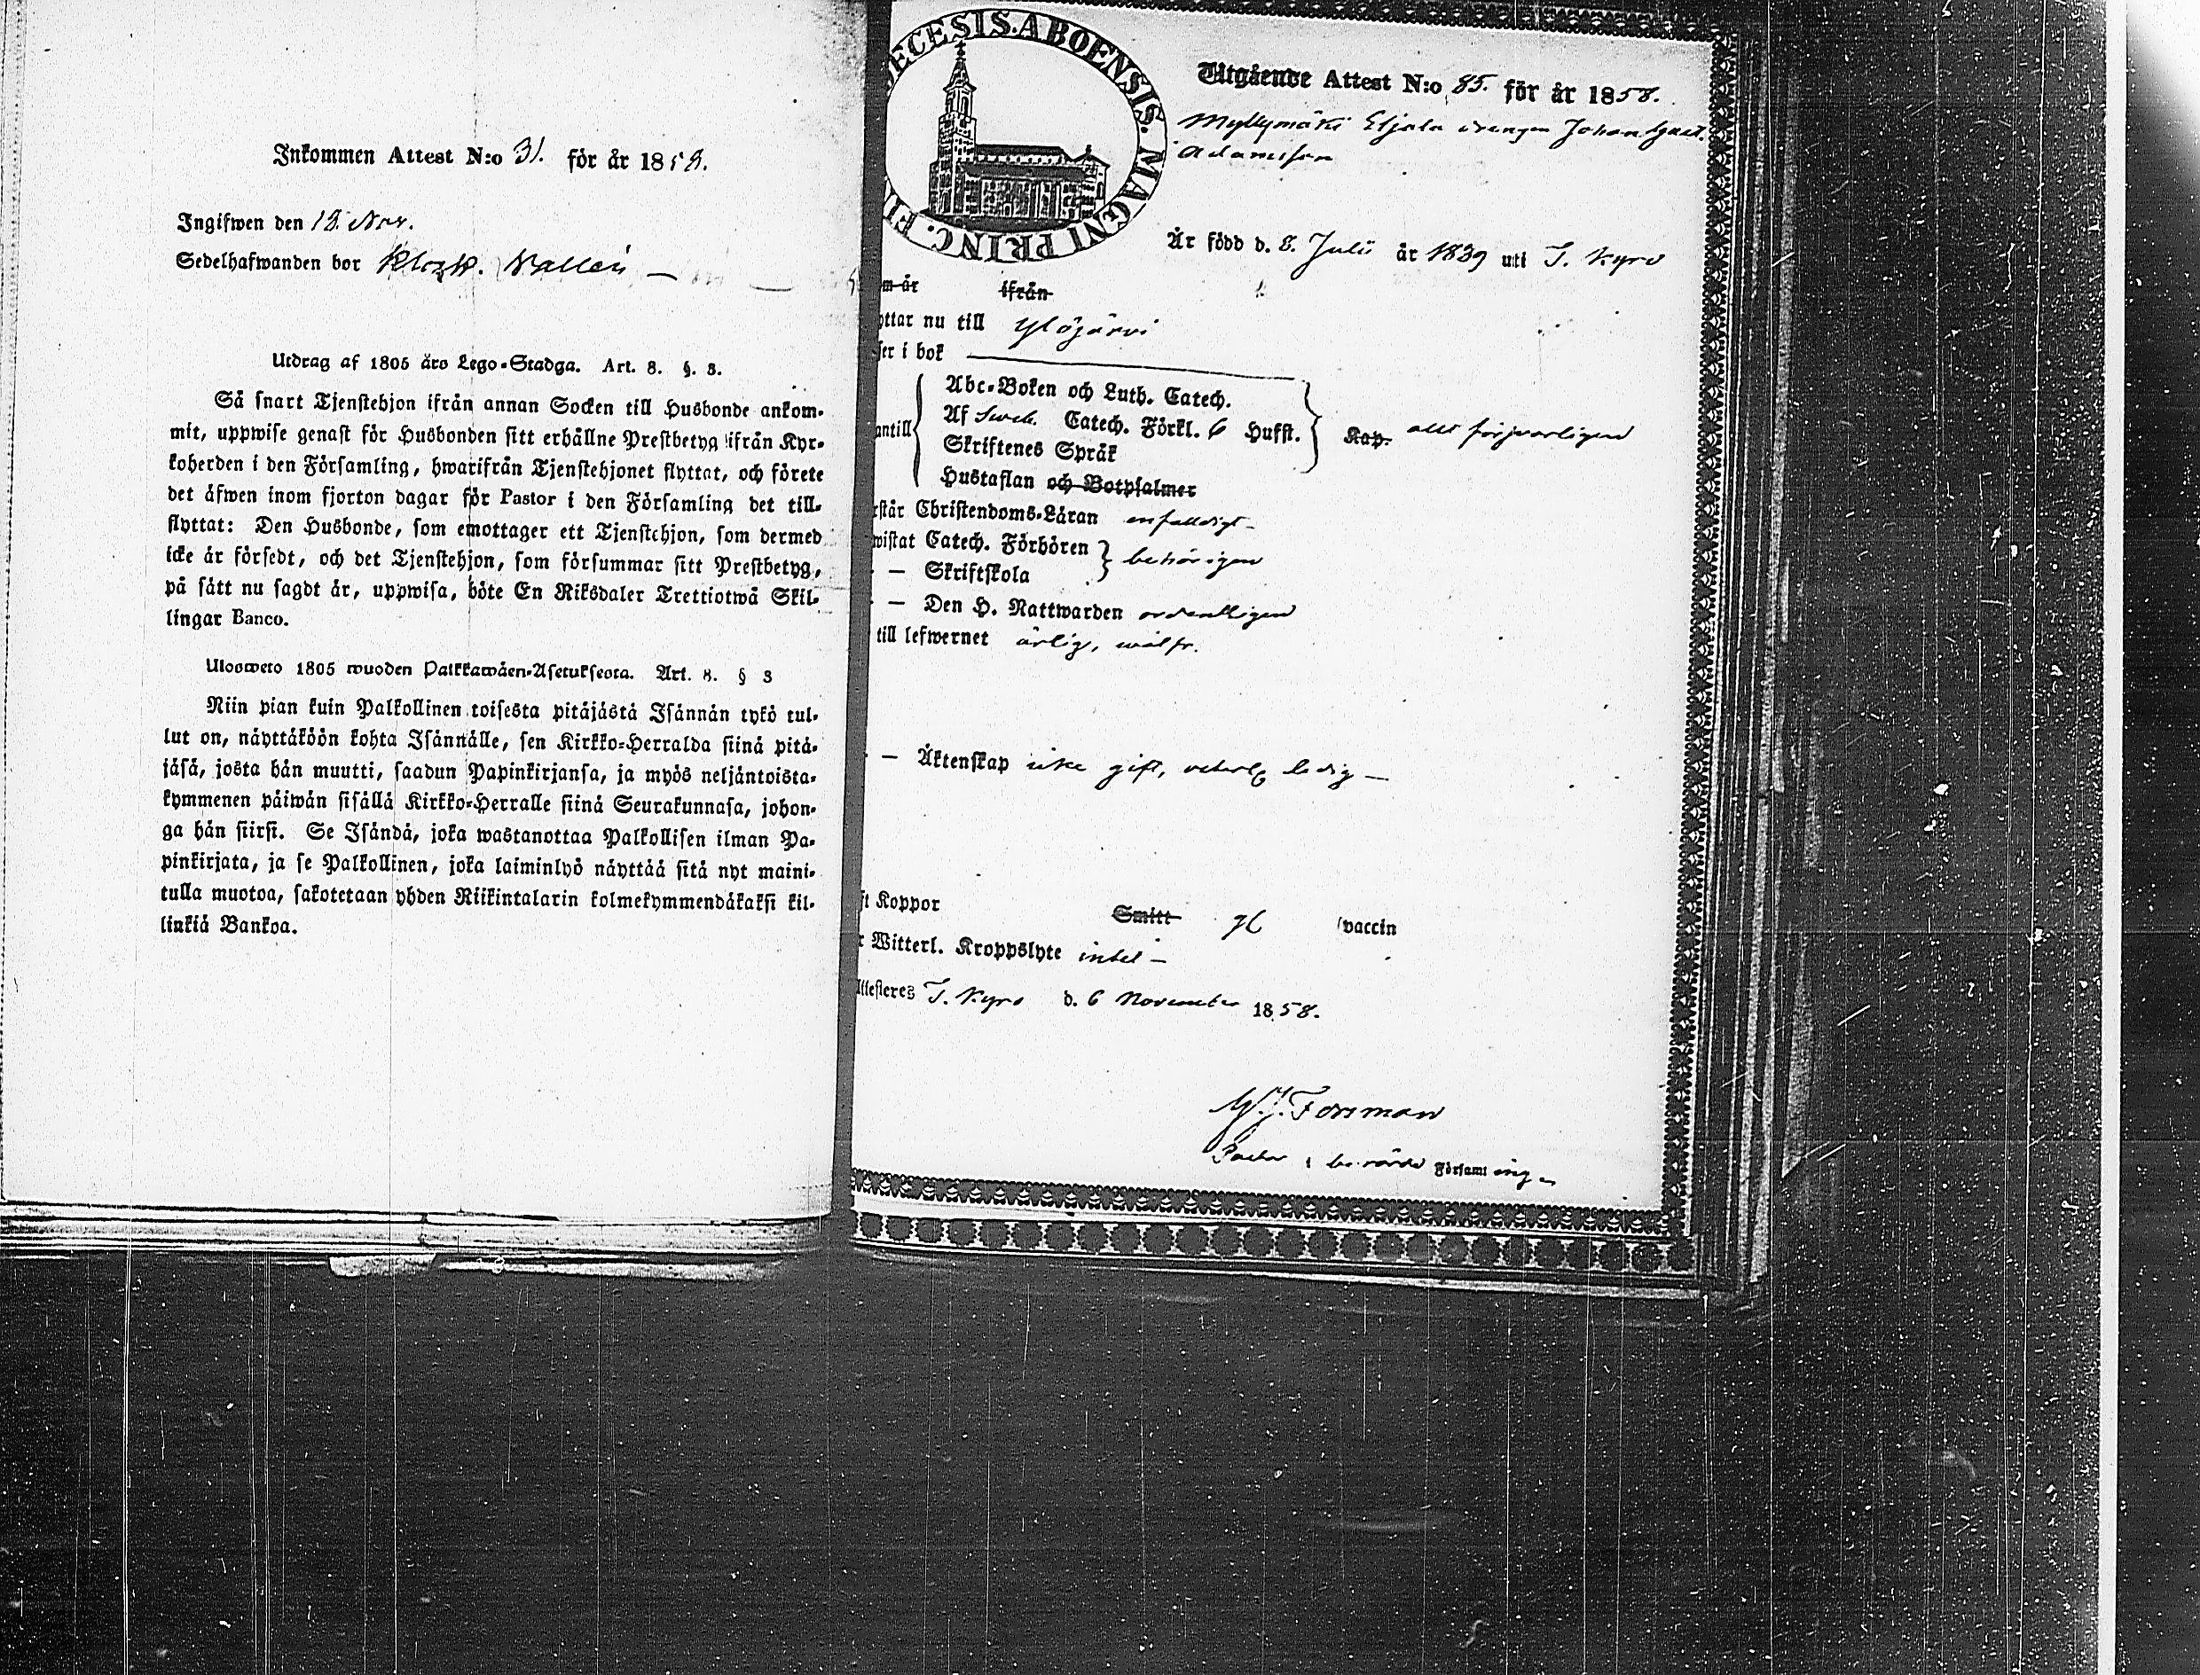 Inkommen Attest N:o 31. för år 1858.
Ingifwen den 18. Nov.
Sedelhafwanden bor
Utdrag af 1805 års Lego-Stadga. Art. 8. §. 3.
Så snart Tjenstehjon ifrån annan Socken till Husbonde ankom-
mit, uppwise genast för Husbonden sitt erhållne Prestbetyg ifrån Kyr-
koherden i den Församling, hwarifrån Tjenstehjonet flyttat, och förete
det äfwen inom fjorton dagar för Pastor i den Församling det till-
flyttat: Den Husbonde, som emottager ett Tjenstehjon, som dermed
icke är försedt, och det Tjenstehjon, som försummar sitt Prestbetyg,
på sätt nu sagdt är, uppwisa, böte En Riksdaler Trettiotwå Skil-
lingar Banco.
Ulosweto 1805 wuoden Palkkawäen-Asetuksesta. Art. 8. § 3
Niin pian kuin Palkollinen toisesta pitäjästä Isännän tykö tul-
lut on, näyttäköön kohta Isännälle, sen Kirkko-Herralda siinä pitä-
jäsä, josta hän muutti, saadun Papinkirjansa, ja myös neljäntoista-
kymmenen päiwän sisällä Kirkko-Herralle siinä Seurakunnasa, johon-
ga hän siirsi. Se Isändä, joka wastanottaa Palkollisen ilman Pa-
pinkirjata, ja se Palkollinen, joka laiminlyö näyttää sitä nyt maini-
tulla muotoa, sakotetaan yhden Riikintalarin kolmekymmendäkaksi kil-
linkiä Bankoa.
ECESIS. ABOENSIS. MAGNI PRINC. FI
Utgående Attest N:o 85. för år 1858.
Myllymäki Eljala drengen Johan Gust.
Adamsson
Är född d. 8. Julii år 1839 uti T. Kyro
m är ifrån
ottar nu till Ylöjärvi
ser i bok
Abc-Boken och Luth. Catech.
antill Af Sveb. Catech. Förkl. 6 Hufst. Kap. allt försvarligen
Skriftenes Språk
Hustaflan och Botpsalmer
rstår Christendoms-Läran enfaldigt
wistat Catech. Förhören behörigen
– Skriftskola
– Den H. Nattwarden ordentligen
till lefwernet ärlig, wälfr.
– Äktenskap icke gift, ledig
ft Koppor Smitt vaccin
r Witterl. Kroppslyte intet
Attesteres T. Kyro d. 6 November 1858.
Forsman
Pastor i berörde Församling